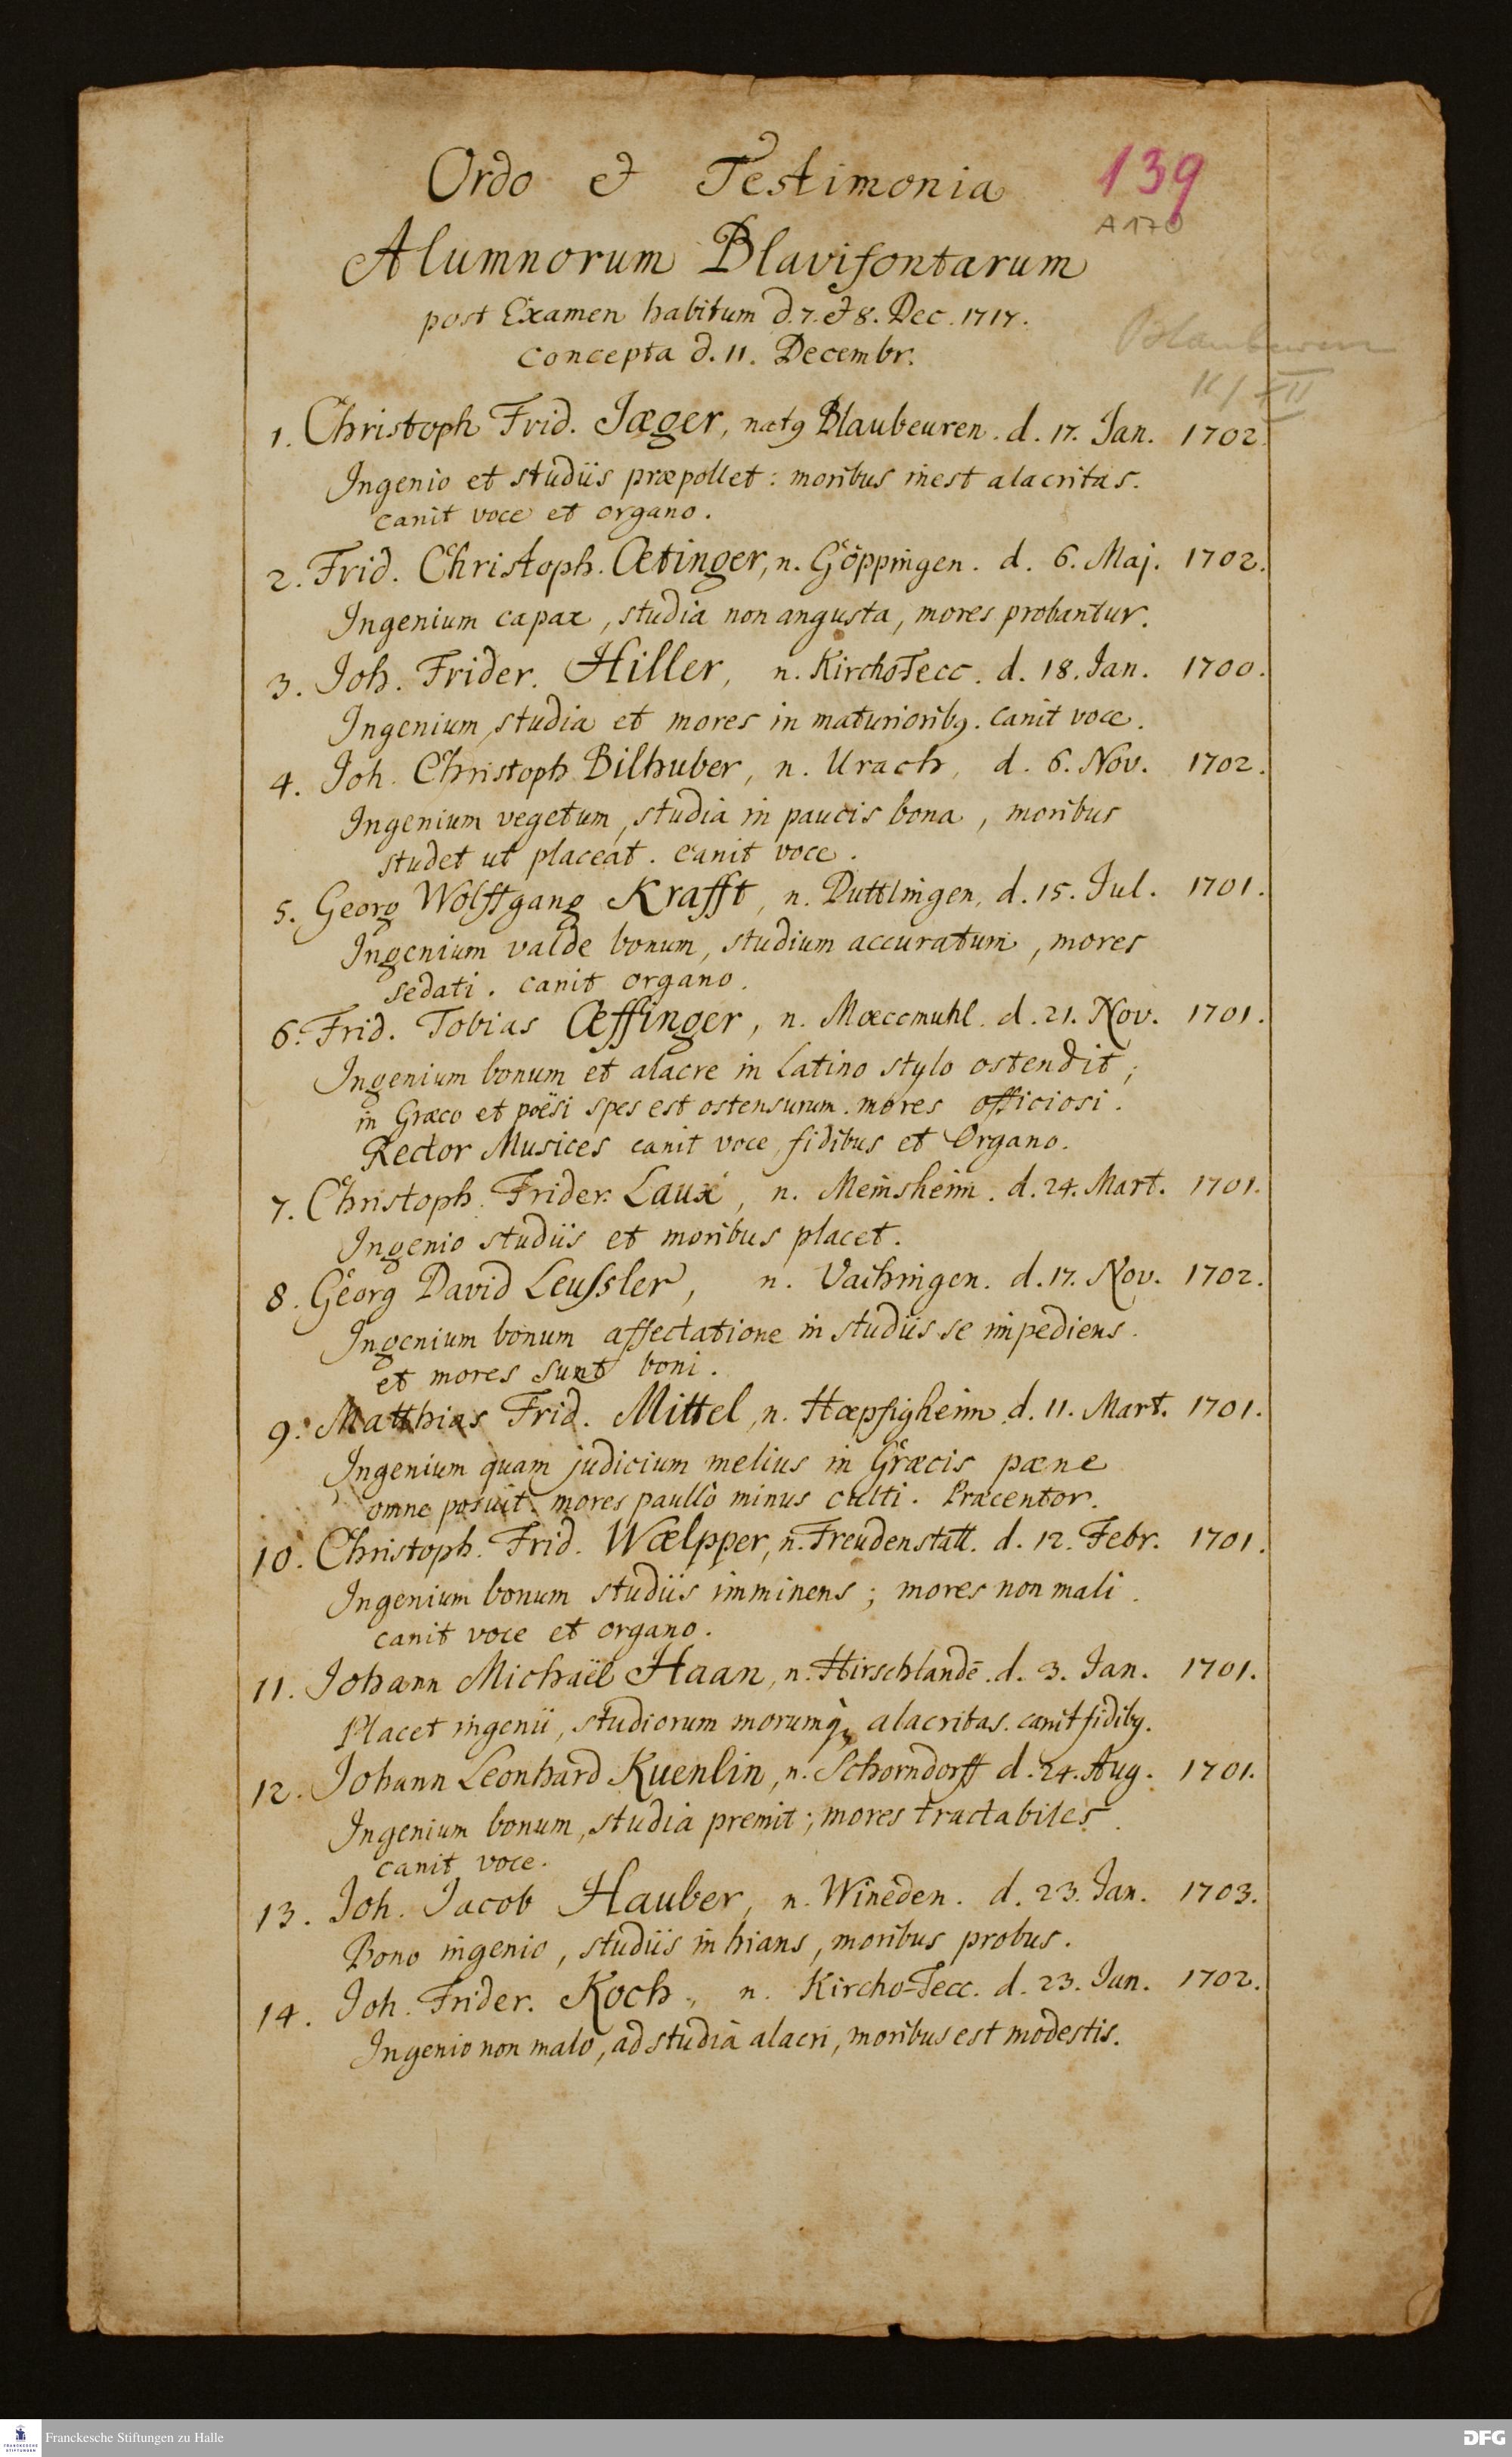 Ordo et Testimonia
139
A 170
Alumnorum Blavifontarum
post Examen habitum d. 7. et 8. Dec. 1717.
Concepta d. 11. Decembr.
Blaubeuren
11/XII
1. Christoph Frid. Jæger, natꝰ Blaubeuren. d. 17. Jan. 1702.
Ingenio et studiis præpollet: moribus inest alacritas.
canit voce et organo.
2. Frid. Christoph. Œtinger, n. Göppingen. d. 6. Maj. 1702.
Ingenium capax, studia non angusta, mores probantur.
3. Joh. Frider. Hiller, n. KirchoTecc. d. 18. Jan. 1700.
Ingenium, studia et mores in maturioribꝰ. canit voce.
4. Joh. Christoph Bilhuber, n. Urach, d. 6. Nov. 1702.
Ingenium vegetum, studia in paucis bona, moribus
studet ut placeat. canit voce.
5. Georg Wolffgang Krafft, n. Duttlingen, d. 15. Jul. 1701.
Ingenium valde bonum, studium accuratum, mores
sedati. canit organo.
6. Frid. Tobias Œffinger, n. Mœccmuhl. d. 21. Nov. 1701.
Ingenium bonum et alacre in Latino stylo ostendit;
in Græco et poësi spes est ostensurum. mores officiosi.
Rector Musices canit voce, fidibus et Organo.
7. Christoph. Frider. Laux, n. Meinsheim. d. 24. Mart. 1701.
Ingenio studiis et moribus placet.
8. Georg David Leussler, n. Vaihingen. d. 17. Nov. 1702.
Ingenium bonum affectatione in studiis se impediens.
et mores sunt boni.
9. Matthias Frid. Mittel, n. Hœpfigheim d. 11. Mart. 1701.
Ingenium quam judicium melius in Græcis pæne
omne posuit. mores paullò minus culti. Præcentor.
10. Christoph. Frid. Wœlpper, n. Freudenstatt. d. 12. Febr. 1701.
Ingenium bonum studiis imminens; mores non mali.
canit voce et organo.
11. Johann Michaël Haan, n. Hirschlandē. d. 3. Jan. 1701.
Placet ingenii, studiorum morumq; alacritas. canit fidibꝰ.
12. Johann Leonhard Kuenlin, n. Schorndorff d. 24. Aug. 1701.
Ingenium bonum, studia premit; mores tractabiles.
canit voce.
13. Joh. Jacob Hauber, n. Wineden. d. 23. Jan. 1703.
Bono ingenio, studiis inhians, moribus probus.
14. Joh. Frider. Koch, n. Kircho-Tecc. d. 23. Jun. 1702.
Ingenio non malo, ad studia alacri, moribus est modestis.
Franckesche Stiftungen zu Halle
FRANCKESCHE STIFTUNGEN
DFG